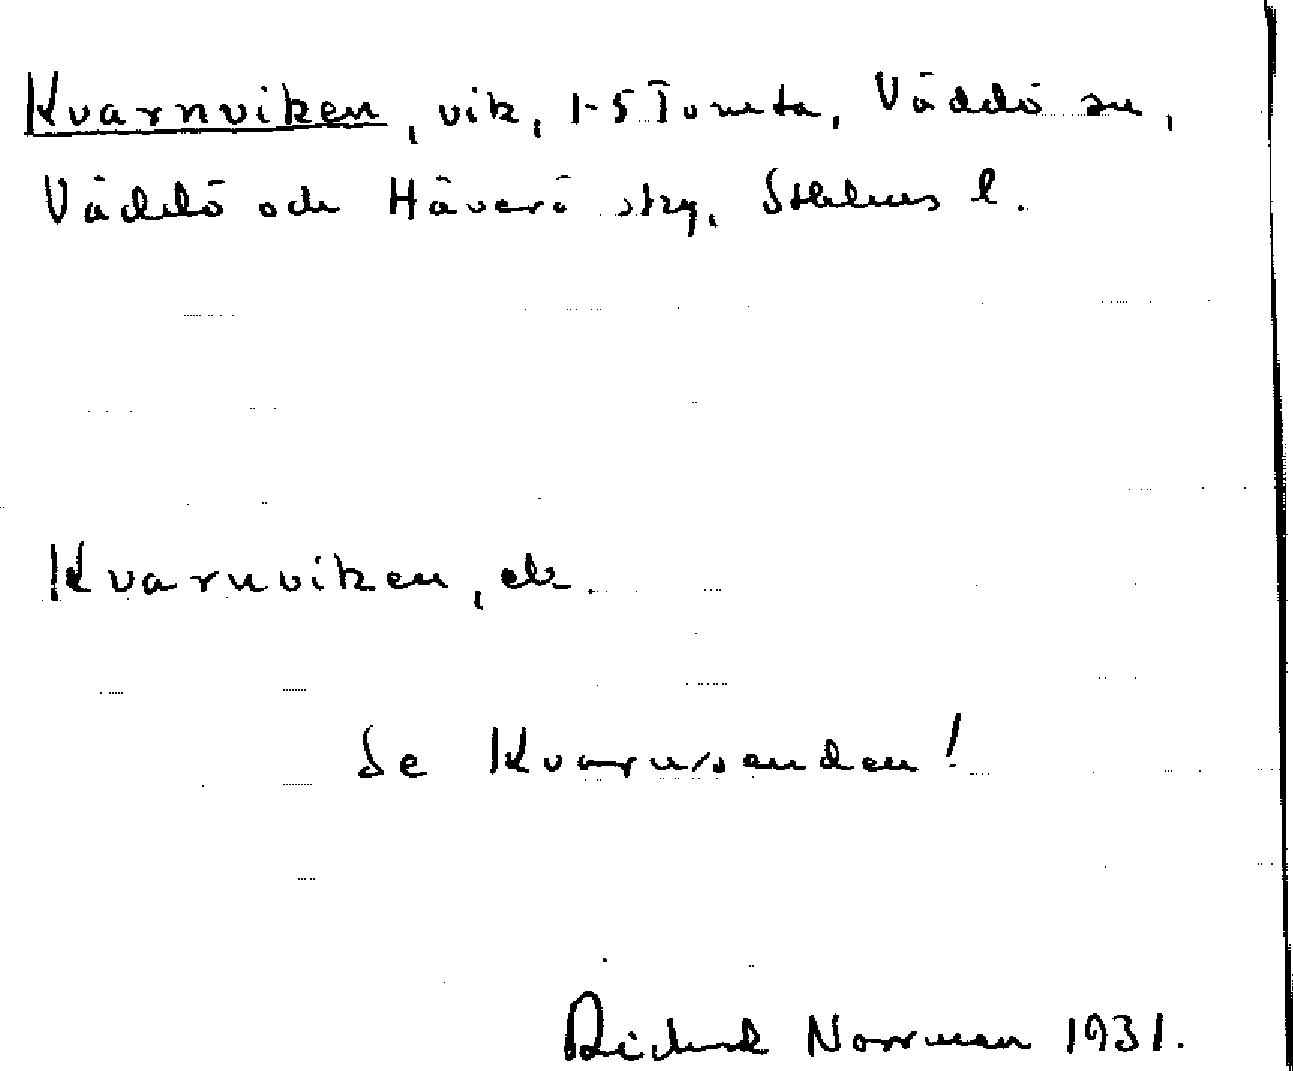 Kvarnviken, vik, 1-5 Tomta, Väddö sn,
Väddö och Häverö skg, Sthlms l.
Kvarnviken, ek.
Se Kvarnsanden!
Richard Norrman 1931.